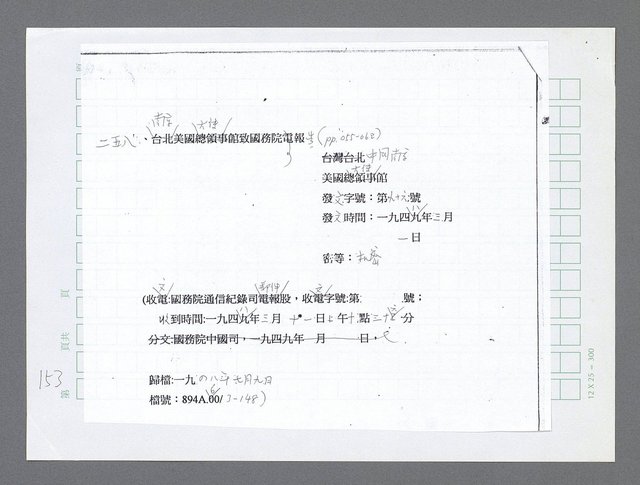 南京 大使
二五八、台北美國總領事館致國務院電報 (pp.055-062)
台灣台北 中國南京
大使
美國總領事館
發文字號：第六十六號
八
發文時間：一九四九年三月
一日
密等：機密
文 郵件 文
(收電:國務院通信紀錄司電報股，收電字號:第 號；
八
收到時間:一九四九年三月十一日上午十點三十分
分文:國務院中國司，一九四九年 月 日，
歸檔:一九四八年七月九日
檔號：894A.00/3-148)
153
第 頁共 頁
12 X 25 = 300